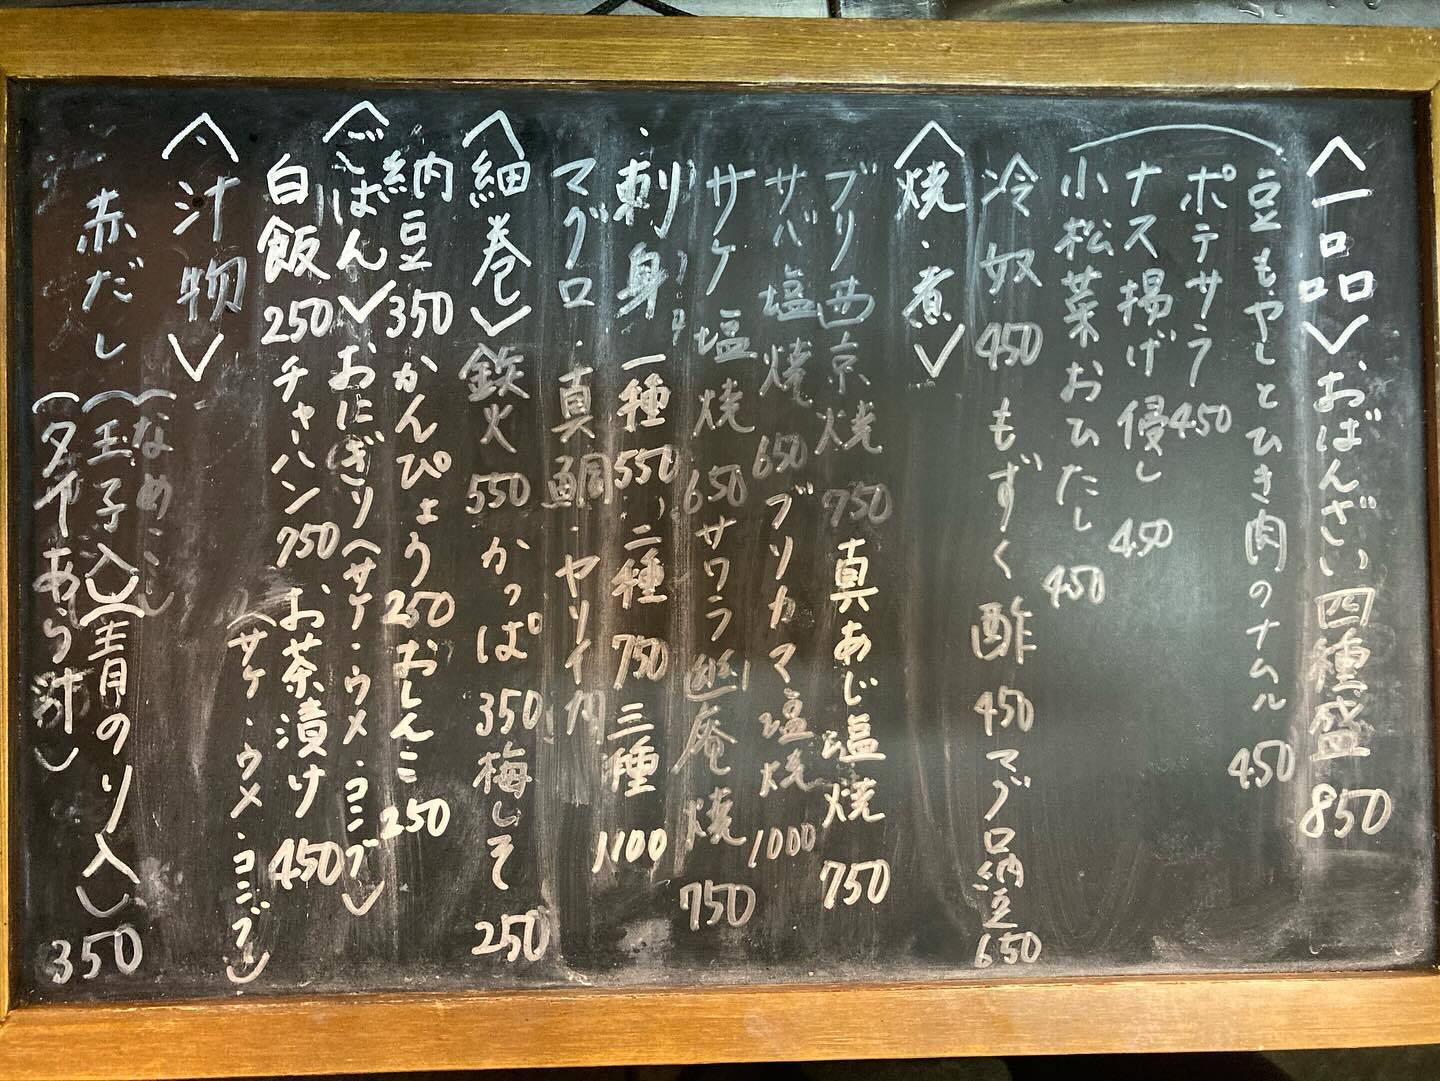 〈一品〉おばんざい四種盛 850
豆もやしとひき肉のナムル 450
ポテサラ 450
ナス揚げ浸し 450
小松菜おひたし 450
冷奴 450 もずく酢 450 マグロ納豆 650
〈焼・煮〉
ブリ西京焼 750 真あじ塩焼 750
サバ塩焼 650 ブリカマ塩焼 1000
サケ塩焼 650 サワラ幽庵焼 750
刺身 一種550、二種 750 三種 1100
マグロ・真鯛・ヤリイカ
〈細巻〉鉄火 550 かっぱ 350 梅しそ 250
納豆 350 かんぴょう 250 おしんこ 250
〈ごはん〉おにぎり(サケ・ウメ・コンブ)
白飯 250 チャーハン 750 お茶漬け 450
(サケ・ウメ・コンブ)
〈汁物〉
赤だし
(なめこ)
(玉子入)(青のり入) 350
(タイあら汁)